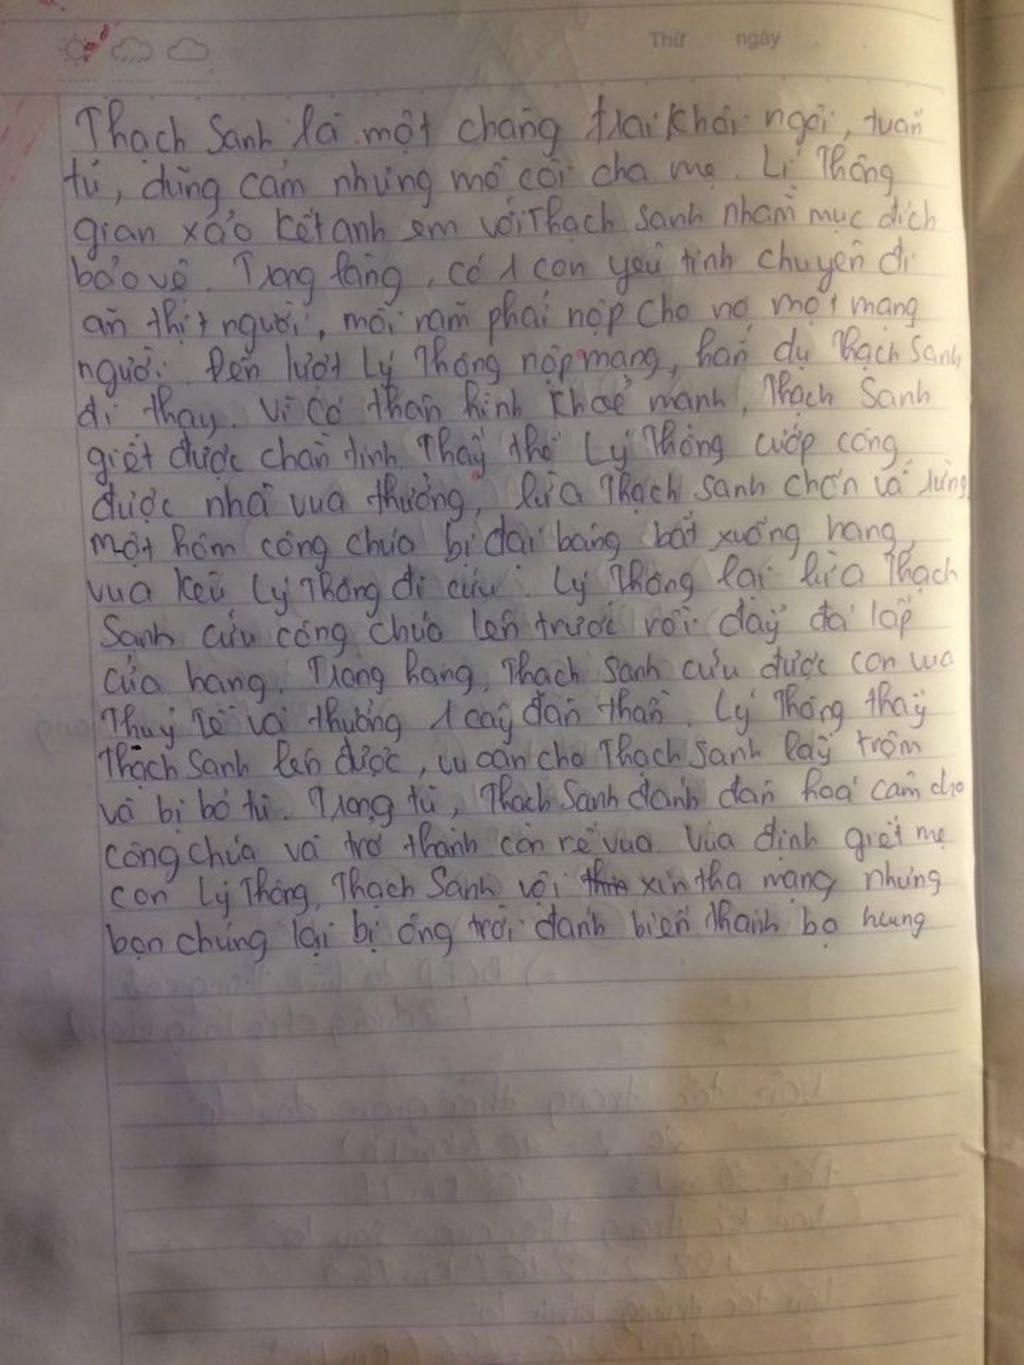 Thứ ngày
Thạch Sanh là một chàng trai khôi ngôi, tuấn
tú, dũng cảm nhưng mồ côi cha mẹ. Lí Thông
gian xảo kết anh em với Thạch Sanh nhằm mục đích
bảo vệ. Trong làng, có 1 con yêu tinh chuyên đi
ăn thịt người, mỗi năm phải nộp cho nó một mạng
người. Đến lượt Lý Thông nộp mạng, hắn dụ Thạch Sanh
đi thay. Vì có thân hình khoẻ mạnh, Thạch Sanh
giết được chằn tinh. Thấy thế Lý Thông cướp công
được nhà vua thưởng, lừa Thạch Sanh chốn và rừng
một hôm công chúa bị đại bàng bắt xuống hang,
vua kêu Lý Thông đi cứu. Lý Thông lại lừa Thạch
Sanh cứu công chúa lên trước rồi đẩy đá lấp
cửa hang. Trong hang, Thạch Sanh cứu được con vua
Thuỷ Tề và thưởng 1 cây đàn thần. Lý Thông thấy
Thạch Sanh lên được, vu oan cho Thạch Sanh lấy trộm
và bị bỏ tù. Trong tù, Thạch Sanh đánh đàn hoá câm cho
công chúa và trở thành còn rể vua. Vua định giết mẹ
con Lý Thông, Thạch Sanh vội xin tha mạng nhưng
bọn chúng lại bị ông trời đánh biến thành bọ hung